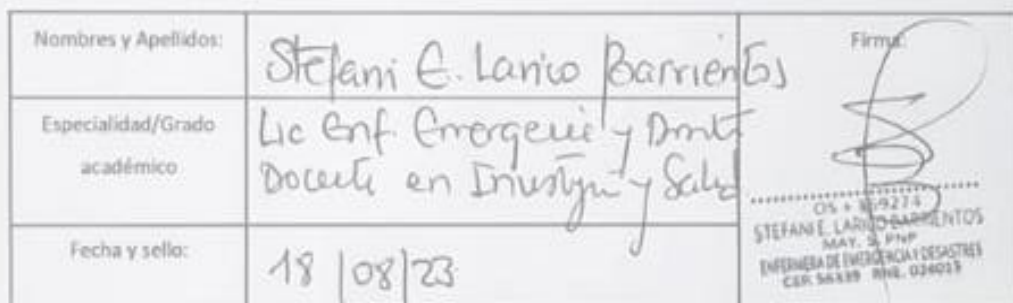 Nombres y Apellidos:
Stefani E. Larico Barrientos
Firma:
Especialidad/Grado
académico
Lic Enf. Emergencia y
Docente en Investign y Salud
Fecha y sello:
18/08/23
STEFANI E. LARICO BARRIENTOS
MAY. S. PNP
ENFERMERA DE EMERGENCIA Y DESASTRES
CEP. 56339 RNE. 024013